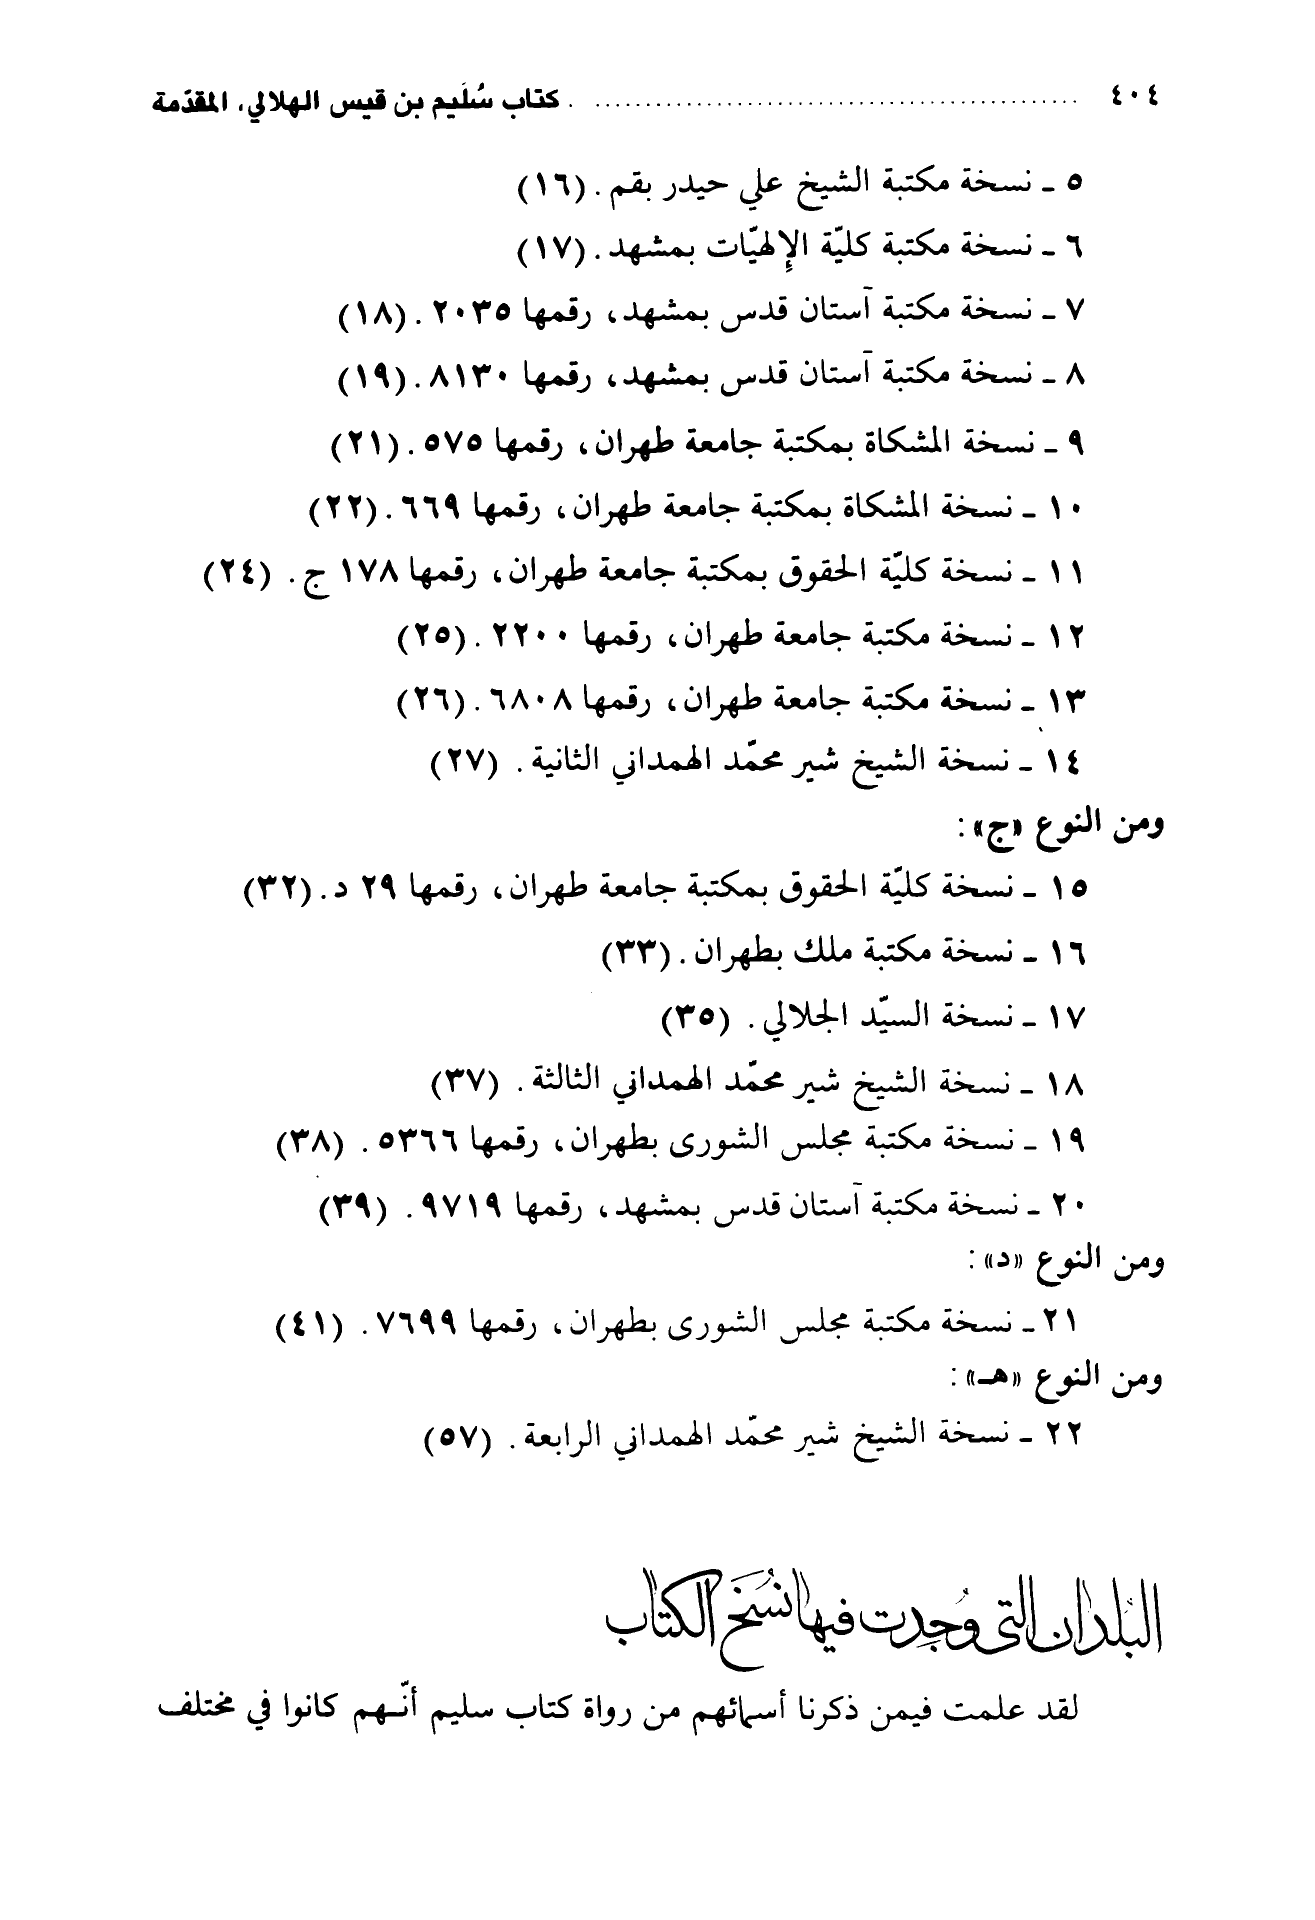 ٤٠٤ ................................................ كتاب سُلَيم بن قيس الهلالي، المقدّمة
٥ ـ نسخة مكتبة الشيخ علي حيدر بقم. (١٦)
٦ ـ نسخة مكتبة كليّة الإلهيّات بمشهد. (١٧)
٧ ـ نسخة مكتبة آستان قدس بمشهد، رقمها ٢٠٣٥. (١٨)
٨ ـ نسخة مكتبة آستان قدس بمشهد، رقمها ٨١٣٠. (١٩)
٩ ـ نسخة المشكاة بمكتبة جامعة طهران، رقمها ٥٧٥. (٢١)
١٠ ـ نسخة المشكاة بمكتبة جامعة طهران، رقمها ٦٦٩. (٢٢)
١١ ـ نسخة كليّة الحقوق بمكتبة جامعة طهران، رقمها ١٧٨ ج. (٢٤)
١٢ ـ نسخة مكتبة جامعة طهران، رقمها ٢٢٠٠. (٢٥)
١٣ ـ نسخة مكتبة جامعة طهران، رقمها ٦٨٠٨. (٢٦)
١٤ ـ نسخة الشيخ شير محمّد الهمداني الثانية. (٢٧)
ومن النوع «ج»:
١٥ ـ نسخة كليّة الحقوق بمكتبة جامعة طهران، رقمها ٢٩ د. (٣٢)
١٦ ـ نسخة مكتبة ملك بطهران. (٣٣)
١٧ ـ نسخة السيّد الجلالي. (٣٥)
١٨ ـ نسخة الشيخ شير محمّد الهمداني الثالثة. (٣٧)
١٩ ـ نسخة مكتبة مجلس الشورى بطهران، رقمها ٥٣٦٦. (٣٨)
٢٠ ـ نسخة مكتبة آستان قدس بمشهد، رقمها ٩٧١٩. (٣٩)
ومن النوع «د»:
٢١ ـ نسخة مكتبة مجلس الشورى بطهران، رقمها ٧٦٩٩. (٤١)
ومن النوع «هـ»:
٢٢ ـ نسخة الشيخ شير محمّد الهمداني الرابعة. (٥٧)
البُلدان التي وُجِدت فيها نُسَخ الكتاب
لقد علمت فيمن ذكرنا أسمائهم من رواة كتاب سليم أنّهم كانوا في مختلف